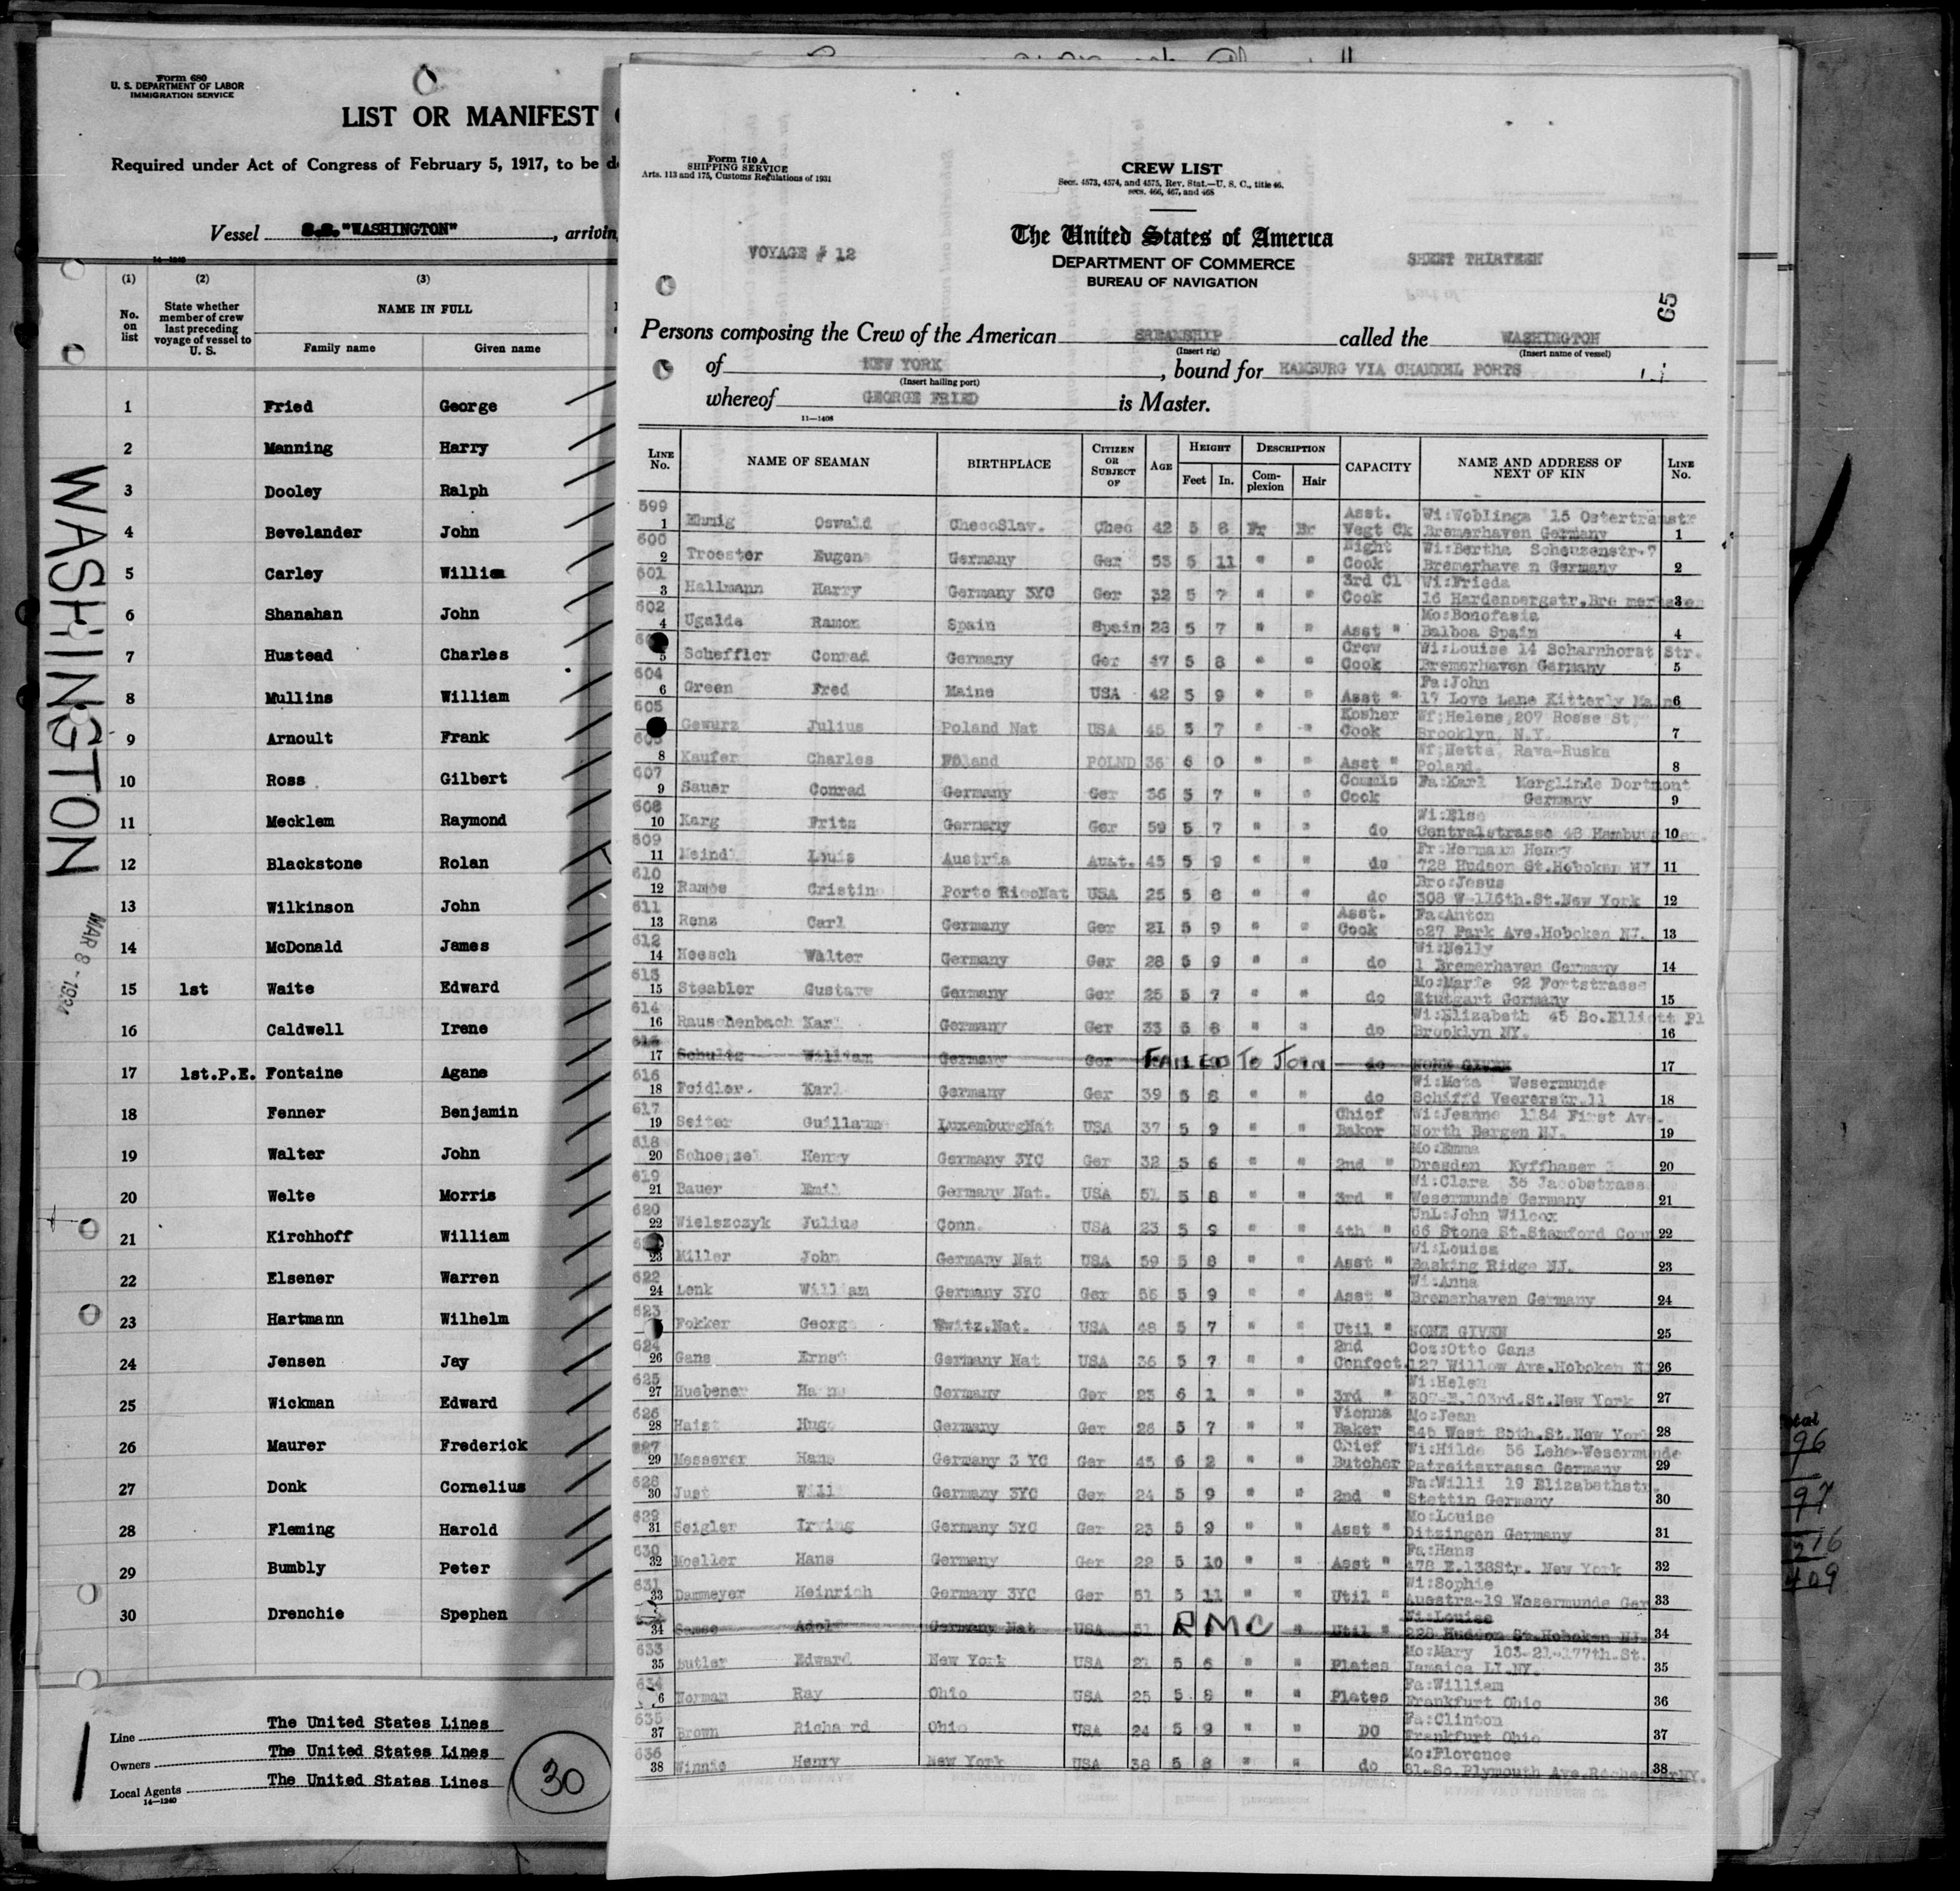 Form 680
U. S. DEPARTMENT OF LABOR
IMMIGRATION SERVICE
LIST OR MANIFEST
Required under Act of Congress of February 5, 1917, to be
Vessel S.S. "WASHINGTON", arrivin
14—1240
(1) (2) (3)
No. on list State whether member of crew last preceding voyage of vessel to U. S. NAME IN FULL
Family name Given name
1 Fried George
2 Manning Harry
3 Dooley Ralph
4 Bevelander John
5 Carley Willie
6 Shanahan John
7 Hustead Charles
8 Mullins William
9 Arnoult Frank
10 Ross Gilbert
11 Mecklem Raymond
12 Blackstone Rolan
13 Wilkinson John
14 McDonald James
15 1st Waite Edward
16 Caldwell Irene
17 1st.P.E. Fontaine Agane
18 Fenner Benjamin
19 Walter John
20 Welte Morris
21 Kirchhoff William
22 Elsener Warren
23 Hartmann Wilhelm
24 Jensen Jay
25 Wickman Edward
26 Maurer Frederick
27 Donk Cornelius
28 Fleming Harold
29 Bumbly Peter
30 Drenchie Spephen
Line The United States Lines
Owners The United States Lines
Local Agents The United States Lines
14—1240
30
WASHINGTON
MAR 8 -
Form 710 A
SHIPPING SERVICE
Arts. 113 and 175, Customs Regulations of 1931
CREW LIST
Secs. 4573, 4574, and 4575, Rev. Stat.—U. S. C., title 46,
secs. 466, 467, and 468
The United States of America
VOYAGE # 12
DEPARTMENT OF COMMERCE
SHEET THIRTEEN
BUREAU OF NAVIGATION
65
Persons composing the Crew of the American SREAMSHIP called the WASHINGTON
(Insert rig) (Insert name of vessel)
of NEW YORK, bound for HAMBURG VIA CHANNEL PORTS
(Insert hailing port)
whereof GEORGE FRIED is Master.
11—1408
LINE No. NAME OF SEAMAN BIRTHPLACE CITIZEN OR SUBJECT OF AGE HEIGHT Feet In. DESCRIPTION Complexion Hair CAPACITY NAME AND ADDRESS OF NEXT OF KIN LINE No.
599 Asst. Wi:Woblinga 15 Ostertramstr
1 Ehnig Oswald ChecoSlav. Chec 42 5 8 Fr Br Vegt Ck Bremerhaven Germany 1
600 Night Wi:Bertha Scheuzenstr.7
2 Troester Eugene Germany Ger 53 5 11 " " Cook Bremerhave n Germany 2
601 3rd Cl Wi:Frieda
3 Hallmann Harry Germany 3YC Ger 32 5 7 " " Cook 16 Hardenbergstr.Bre merhaven 3
602 Mo:Bonofasia
4 Ugalda Ramon Spain Spain 28 5 7 " " Asst " Balboa Spain 4
Crew Wi:Louise 14 Scharnhorst Str.
5 Scheffler Conrad Germany Ger 47 5 8 " " Cook Bremerhaven Germany 5
604 Fa:John
6 Green Fred Maine USA 42 5 9 " " Asst " 17 Love Lane Kitterly Main 6
605 Kosher Wf:Helene,207 Rosse St,
Gewurz Julius Poland Nat USA 45 5 7 " " Cook Brooklyn, N.Y. 7
Wf:Netta, Rawa-Ruska
8 Kaufer Charles Poland POLND 36 6 0 " " Asst " Poland. 8
607 Commis Fa:Karl Merglinde Dortmont
9 Sauer Conrad Germany Ger 36 5 7 " " Cook Germany 9
608 Wi:Else
10 Karg Fritz Germany Ger 59 5 7 " " do Centralstrasse 48 Hamburg 10
609 Fr:Hermann Henry
11 Meindl Louis Austria Aust. 45 5 9 " " do 728 Hudson St.Hoboken NJ 11
610 Bro:Jesus
12 Ramos Cristino Porto RicoNat USA 25 5 8 " " do 308 W-116th.St.New York 12
611 Asst. Fa:Anton
13 Renz Carl Germany Ger 21 5 9 " " Cook 627 Park Ave.Hoboken NJ. 13
612 Wi:Nelly
14 Heesch Walter Germany Ger 28 5 9 " " do 1 Bremerhaven Germany 14
613 Mo:Marie 92 Fortstrasse
15 Steabler Gustave Germany Ger 25 5 7 " " do Stutgart Germany 15
614 Wi:Elizabeth 45 So.Elliott Pl
16 Rauschenbach Karl Germany Ger 33 5 8 " " do Brooklyn NY. 16
615
17 Schultz William Germany Ger FAILED TO JOIN do NONE GIVEN 17
616 Wi:Meta Wesermunde
18 Feidler. Karl Germany Ger 39 5 8 " " do Schiffd Veererstr.11 18
617 Chief Wi:Jeanne 1184 First Ave.
19 Seiter Guillaume LuxemburgNat USA 37 5 9 " " Baker North Bergen NJ. 19
618 Mo:Emma
20 Schoetzel Henry Germany 3YC Ger 32 5 6 " " 2nd " Dresden Kyffhaser 20
619 Wi:Clara 35 Jacobstrass
21 Bauer Emil Germany Nat. USA 51 5 8 " " 3rd " Wesermunde Germany 21
620 UnL:John Wilcox
22 Wielszczyk Julius Conn. USA 23 5 9 " " 4th " 66 Stone St.Stamford Conn 22
Wi:Louisa
23 Miller John Germany Nat USA 59 5 8 " " Asst " Basking Ridge NJ. 23
622 Wi:Anna
24 Lenk William Germany 3YC Ger 56 5 9 " " Asst " Bremerhaven Germany 24
623
Fokker George Switz.Nat. USA 48 5 7 " " Util " NONE GIVEN 25
624 2nd Coz:Otto Gans
26 Gans Ernst Germany Nat USA 36 5 7 " " Confect. 127 Willow Ave.Hoboken N 26
625 Wi:Helen
27 Huebener Hans Germany Ger 23 6 1 " " 3rd " 307-E.103rd.St.New York 27
626 Vienna Mo:Jean
28 Haist Hugo Germany Ger 26 5 7 " " Baker 345 West 85th.St.New York 28
627 Chief Wi:Hilde 36 Lehe-Wesermunde
29 Messerer Hans Germany 3 YC Ger 45 6 2 " " Butcher Patreitstrasse Germany 29
628 Fa:Willi 19 Elizabethstr.
30 Just Willi Germany 3YC Ger 24 5 9 " " 2nd " Stettin Germany 30
629 Mo:Louise
31 Seigler Irving Germany 3YC Ger 23 5 9 " " Asst " Ditzingen Germany 31
630 Fa:Hans
32 Moeller Hans Germany Ger 22 5 10 " " Asst " 478 E.138Str. New York 32
631 Wi:Sophie
33 Dammeyer Heinrich Germany 3YC Ger 51 5 11 " " Util " Auestra-19 Wesermunde Ger 33
Wi:Louise
34 Adolf Germany Nat USA 51 RMC " Util " 228 Hudson St.Hoboken NJ. 34
633 Mo:Mary 103-21-177th.St.
35 Butler Edward New York USA 21 5 6 " " Plates Jamaica LI.NY. 35
634 Fa:William
Norman Ray Ohio USA 25 5 8 " " Plates Frankfurt Ohio 36
635 Fa:Clinton
37 Brown Richard Ohio USA 24 5 9 " " DO Frankfurt Ohio 37
636 Mo:Florence
38 Winnie Henry New York USA 38 5 8 " " do 81-So.Plymouth Ave.Rochester NY. 38
96
97
216
409